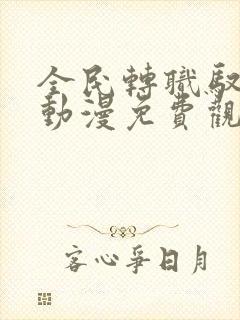 全民轉職馭
動漫免費觀
客心爭日月